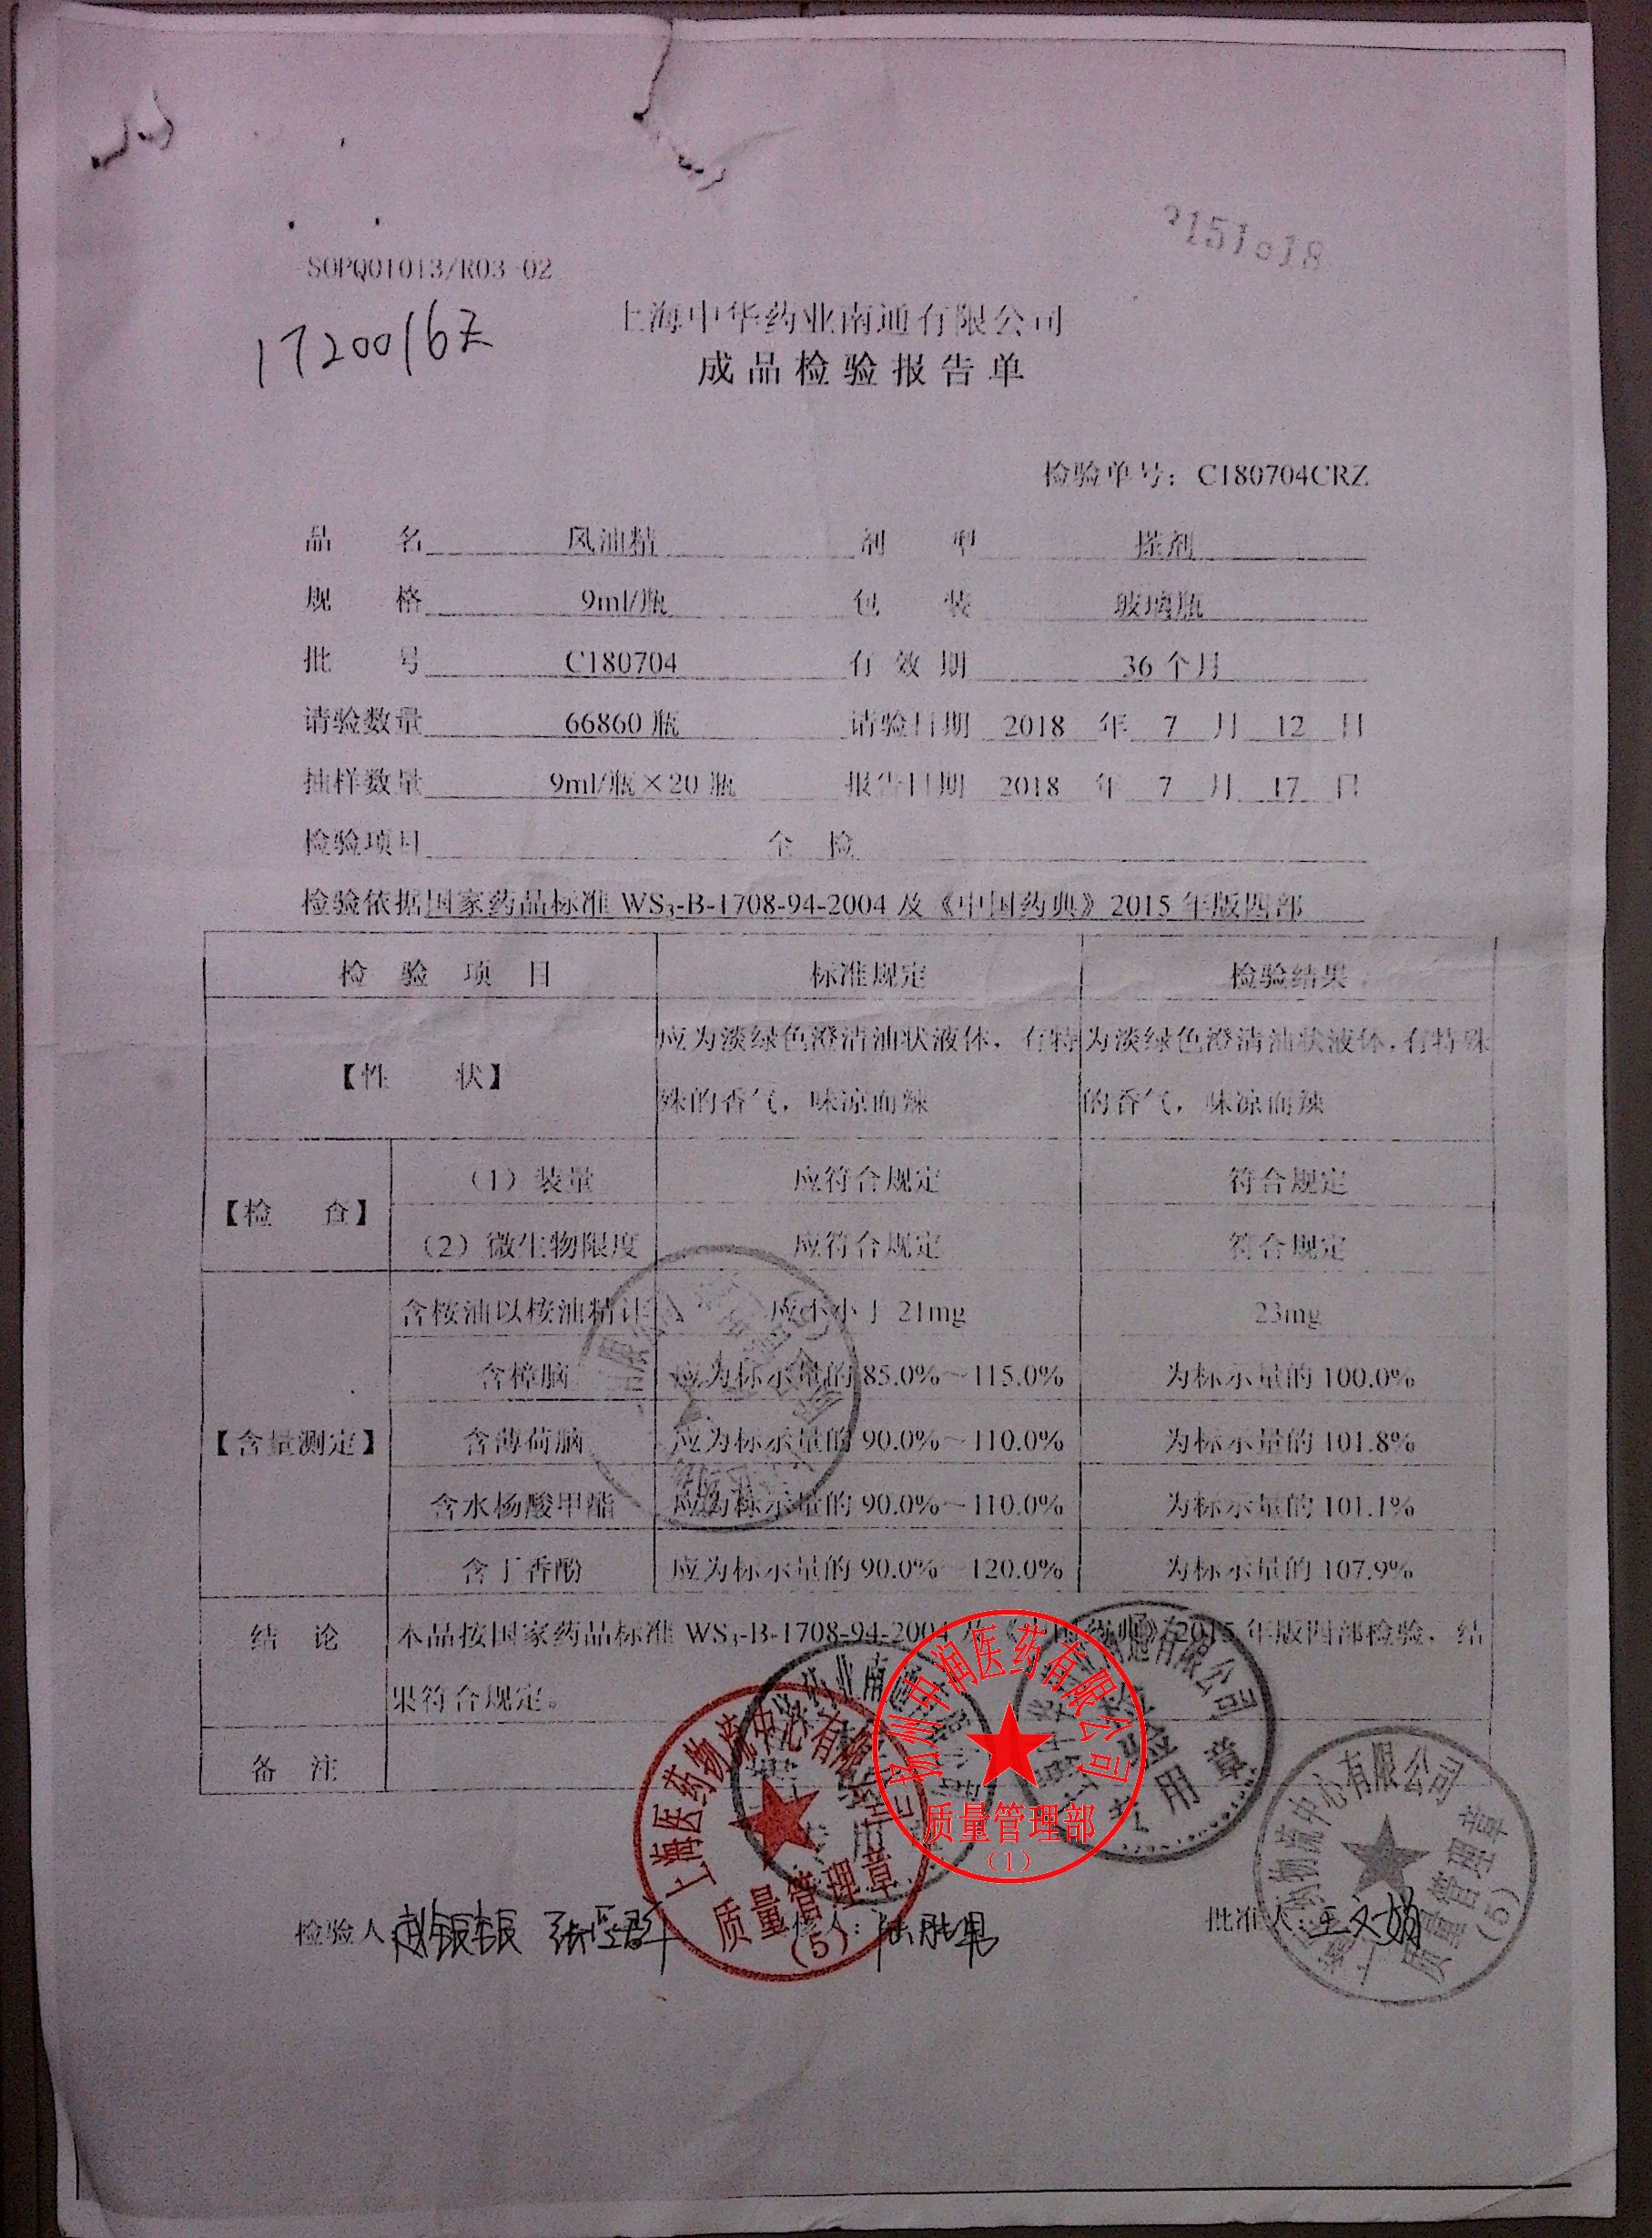 SOPQ01013/R03-02
151018
1720016Z
上海中华药业南通有限公司
成品检验报告单
检验单号：C180704CRZ
品 名 风油精 剂 型 搽剂
规 格 9ml/瓶 包 装 玻璃瓶
批 号 C180704 有 效 期 36 个月
请验数量 66860 瓶 请验日期 2018 年 7 月 12 日
抽样数量 9ml/瓶×20 瓶 报告日期 2018 年 7 月 17 日
检验项目 全 检
检验依据国家药品标准 WS₃-B-1708-94-2004 及《中国药典》2015 年版四部
检 验 项 目 标准规定 检验结果
【性 状】 应为淡绿色澄清油状液体，有特殊的香气，味凉而辣 为淡绿色澄清油状液体，有特殊的香气，味凉而辣
【检 查】 （1）装量 应符合规定 符合规定
（2）微生物限度 应符合规定 符合规定
【含量测定】 含桉油以桉油精计 应不小于 21mg 23mg
含樟脑 应为标示量的 85.0%～115.0% 为标示量的 100.0%
含薄荷脑 应为标示量的 90.0%～110.0% 为标示量的 101.8%
含水杨酸甲酯 应为标示量的 90.0%～110.0% 为标示量的 101.1%
含丁香酚 应为标示量的 90.0%～120.0% 为标示量的 107.9%
结 论 本品按国家药品标准 WS₃-B-1708-94-2004 及《中国药典》2015 年版四部检验，结
果符合规定。
备 注
上海医药物流中心有限公司
质量管理章
(5)
杭州中润医药有限公司
质量管理部
(1)
检验专用章
物流中心有限公司
质量管理章
(5)
检验人：
批准人：王文娟